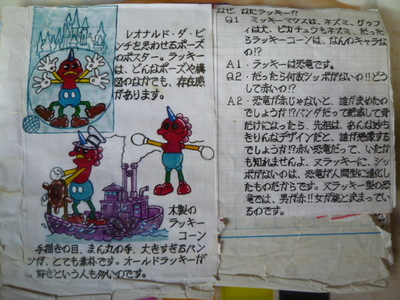 レオナルド・ダ・ビ
ンチを思わせるポーズ
のポスター。ラッキー
は、どんなポーズや構
図のなかでも、存在感
があります。
木製の
ラッキー
コーン
手描きの目、まん丸の手、大きすぎるパン
ツが、とても素朴です。オールドラッキーが
好きという人も多いのです。
なぜ、なにラッキー!?
Q1 ミッキーマウスは、ネズミ、グッフ
ィは犬、ピカチュウもネズミ、だった
らラッキーコーンは、なんのキャラな
の!?
A1．ラッキーは恐竜です。
Q2．だったら何故シッポがないの!!どう
して赤いの!?
A2．恐竜が赤じゃないと、誰がきめたの
でしょうか!?パンダだって絶滅して骨
だけになったら、先祖は、あんな蛇
きりんなデザインだと、誰が想像する
でしょうか!?赤い恐竜だって、いたか
も知れませんよ、ヌラッキーに、シッ
ポがないのは、恐竜が人間型に進化し
たものだからです。ヌラッキー型の恐
竜では、男が赤!!女が緑と決まってい
るのです。